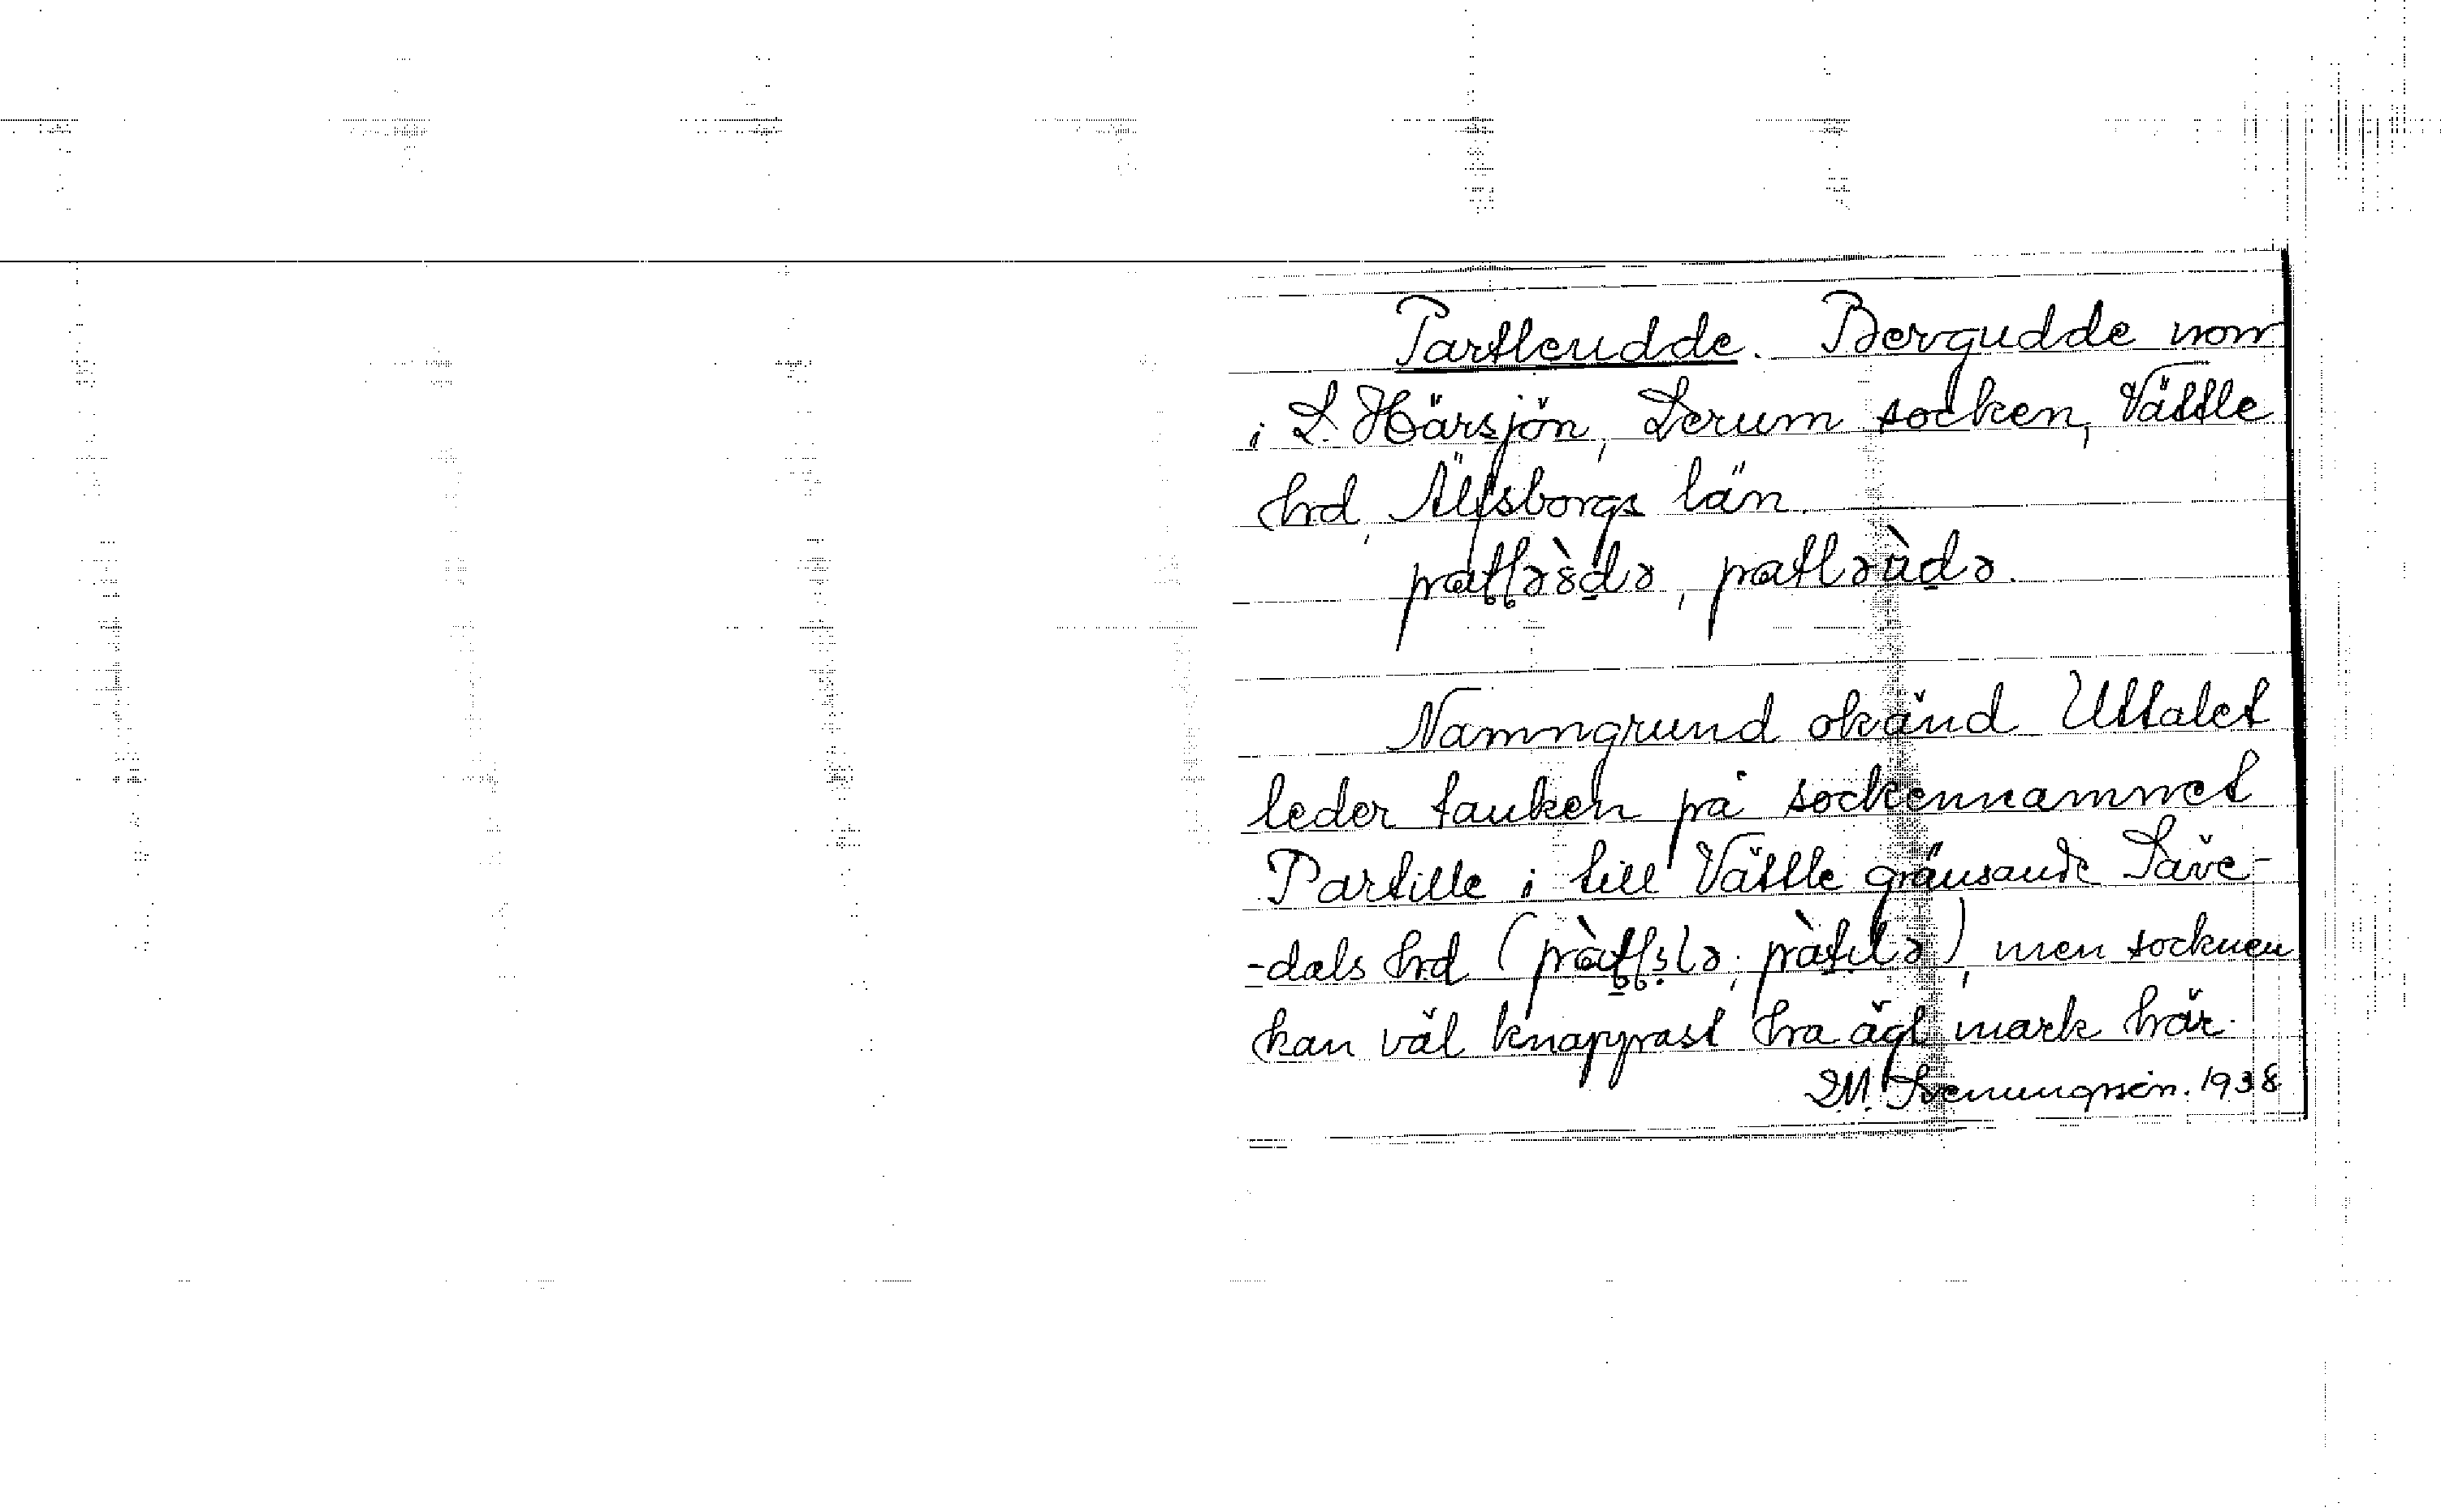 Partleudde. Bergudde nom
i L. Härsjön, Lerum socken, Vättle
hrd, Älfsborgs län.
Namngrund okänd Uttalet
leder tanken på sockennamnet
Partille i till Vättle gränsande Säve-
-dals hrd ( ), men socknen
kan väl knappast ha ägt mark här.
Svenungsson. 1938